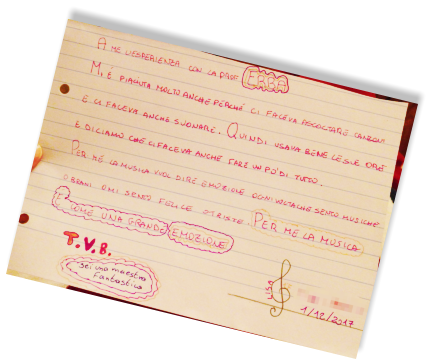 A ME L'ESPERIENZA CON LA PROF ERBA
MI È PIACIUTA MOLTO ANCHE PERCHÉ CI FACEVA ASCOLTARE CANZONI
E CI FACEVA ANCHE SUONARE. QUINDI USAVA BENE LE SUE ORE
E DICIAMO CHE CI FACEVA ANCHE FARE UN PO' DI TUTTO.
PER ME LA MUSICA VUOL DIRE EMOZIONE OGNI VOLTA CHE SENTO MUSICHE
O BRANI O MI SENTO FELICE O TRISTE. PER ME LA MUSICA
È COME UNA GRANDE EMOZIONE
T.V.B.
Sei una maestra
Fantastica
1/12/2017